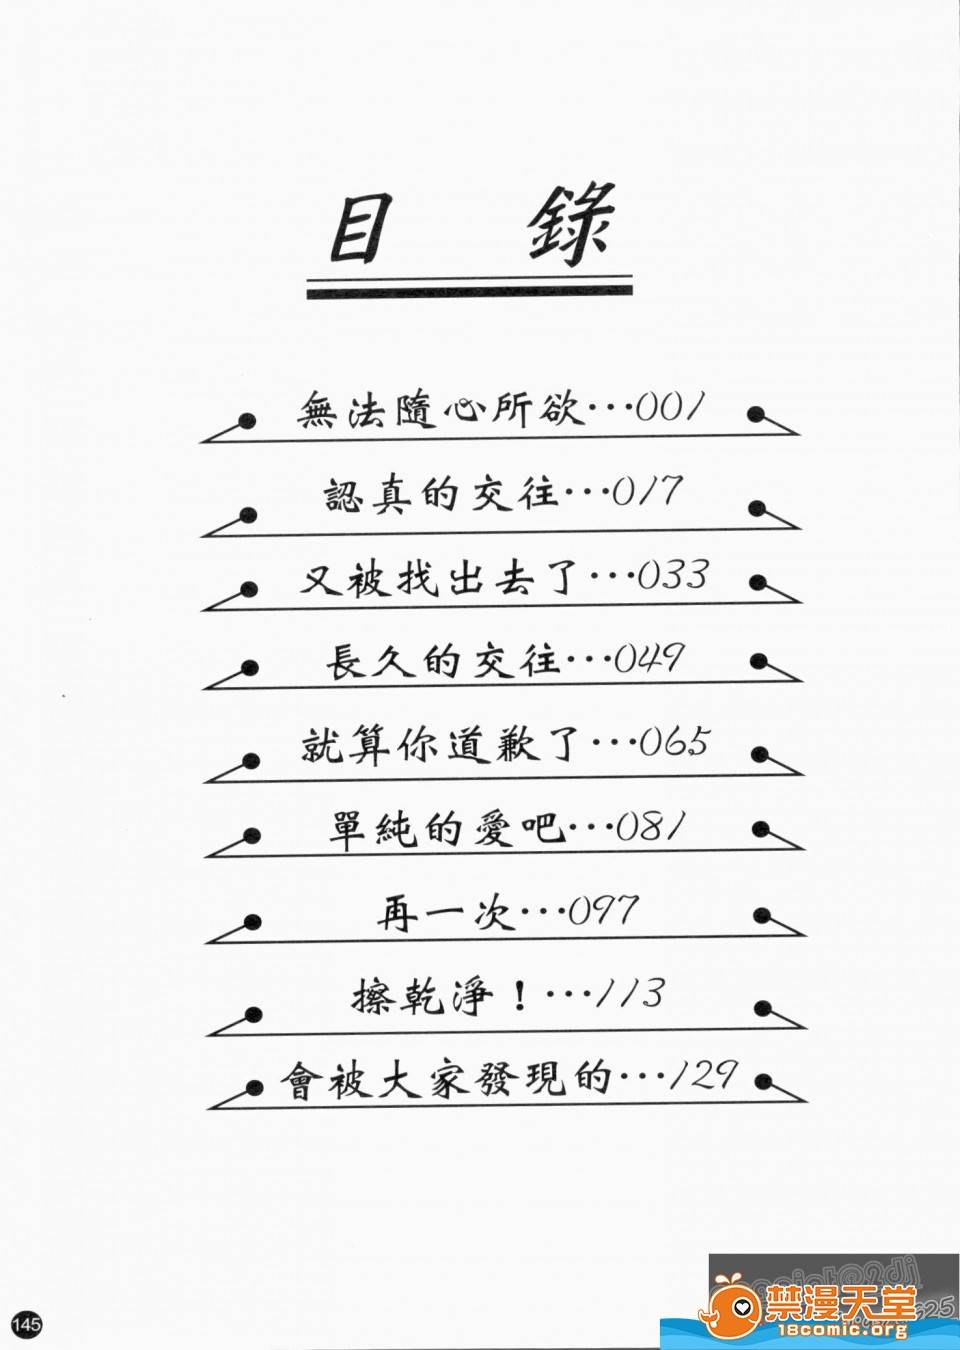 目 錄
無法隨心所欲···001
認真的交往···017
又被找出去了···033
長久的交往···049
就算你道歉了···065
單純的愛吧···081
再一次···097
擦乾淨！···113
會被大家發現的···129
145
禁漫天堂
18comic.org